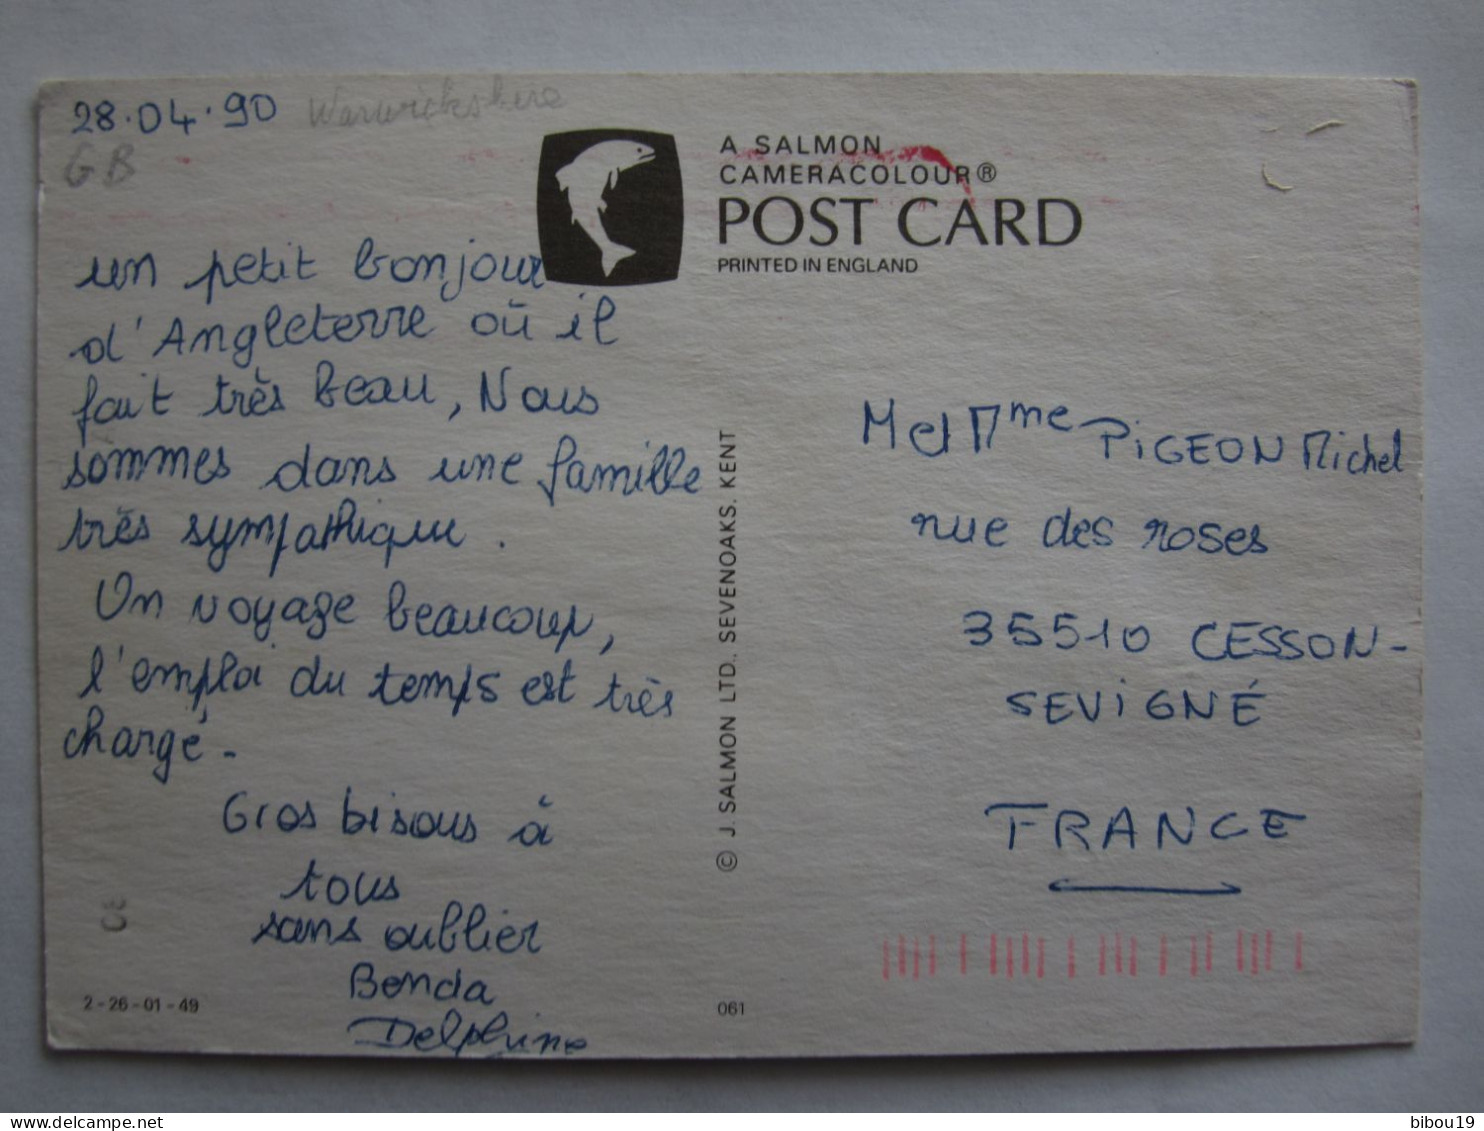 28.04.90 Warwickshire
GB
A SALMON
CAMERACOLOUR®
POST CARD
PRINTED IN ENGLAND
un petit bonjour
d'Angleterre où il
fait très beau, Nous
sommes dans une famille
très sympathique.
On voyage beaucoup,
l'emploi du temps est très
chargé -
Gros bisous à
tous
sans oublier
Benda
Delphine
2-26-01-49
061
© J. SALMON LTD., SEVENOAKS. KENT
M et Mme PiGEON Michel
rue des roses
35510 CESSON-
SEViGNÉ
FRANCE
bibou19